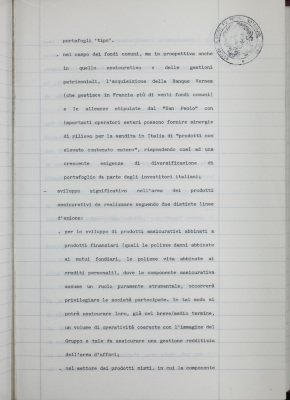 portafogli "tipo".
. nel campo dei fondi comuni, ma in prospettiva anche
in quello assicurativo e delle gestioni
patrimoniali, l'acquisizione della Banque Vernes
(che gestisce in Francia più di venti fondi comuni)
e le alleanze stipulate dal "San Paolo" con
importanti operatori esteri possono fornire sinergie
di rilievo per la vendita in Italia di "prodotti con
elevato contenuto estero", rispondendo così ad una
crescente esigenza di diversificazione di
portafoglio da parte degli investitori italiani;
- sviluppo significativo nell'area dei prodotti
assicurativi da realizzare seguendo due distinte linee
d'azione:
. per lo sviluppo di prodotti assicurativi abbinati a
prodotti finanziari (quali le polizze danni abbinate
ai mutui fondiari, le polizze vita abbinate ai
crediti personali), dove la componente assicurativa
assume un ruolo puramente strumentale, occorrerà
privilegiare le società partecipate. In tal modo si
potrà assicurare loro, già nel breve/medio termine,
un volume di operatività coerente con l'immagine del
Gruppo e tale da assicurare una gestione redditizia
dell'area d'affari;
. nel settore dei prodotti misti, in cui la componente